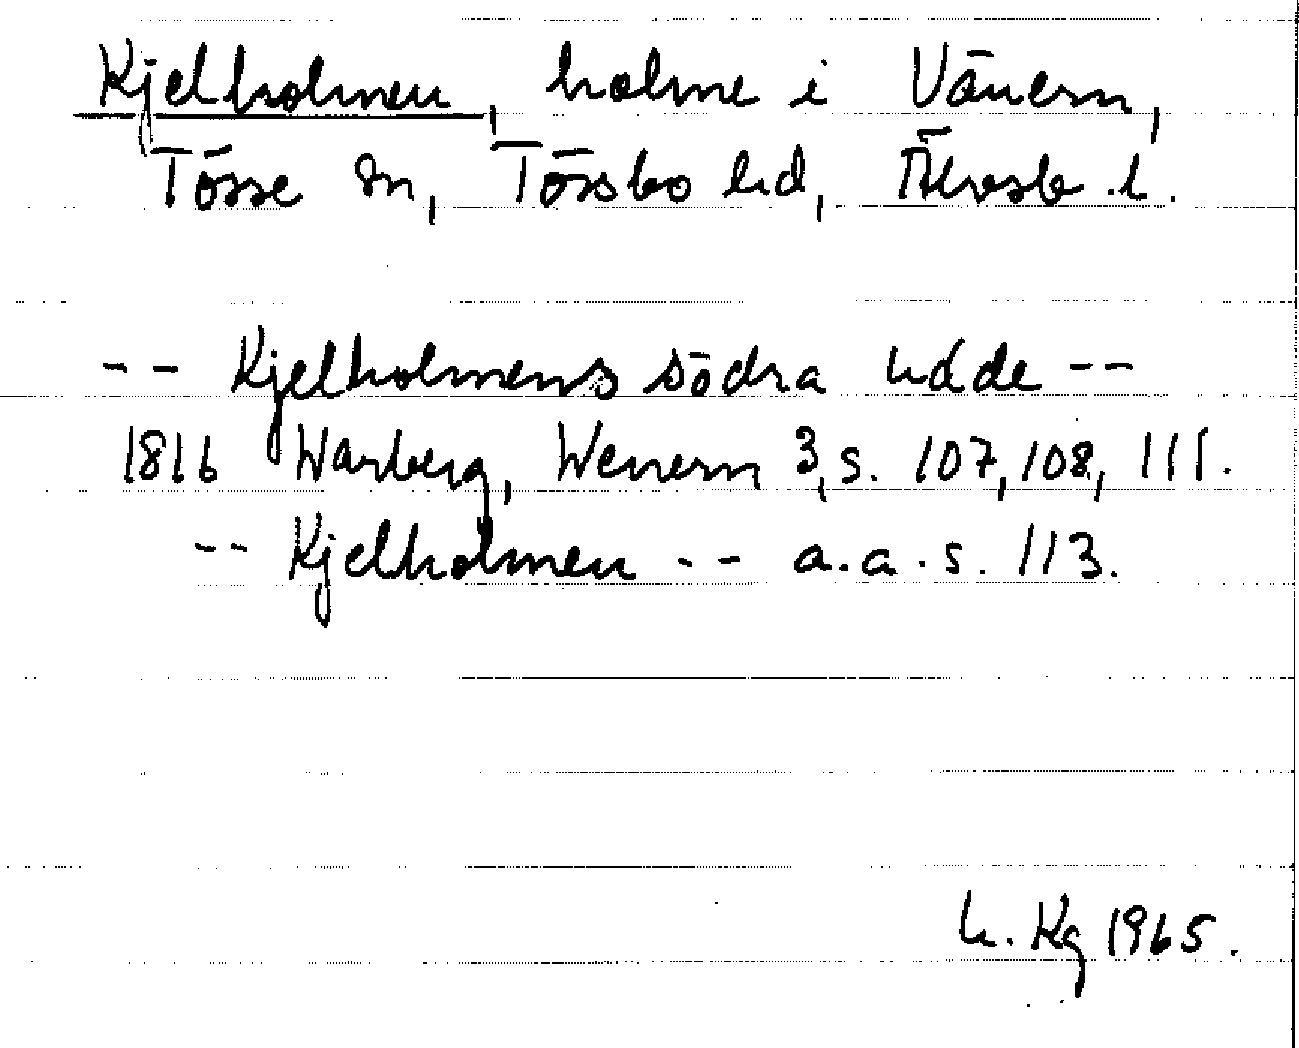 Kjelholmen, holme i Vänern,
Tösse sn, Tössbo hd, Älvsb. l.
-- Kjelholmens södra udde --
1816 Warberg, Wenern 3, s. 107, 108, 111.
-- Kjelholmen -- a.a. s. 113.
Kg 1965.